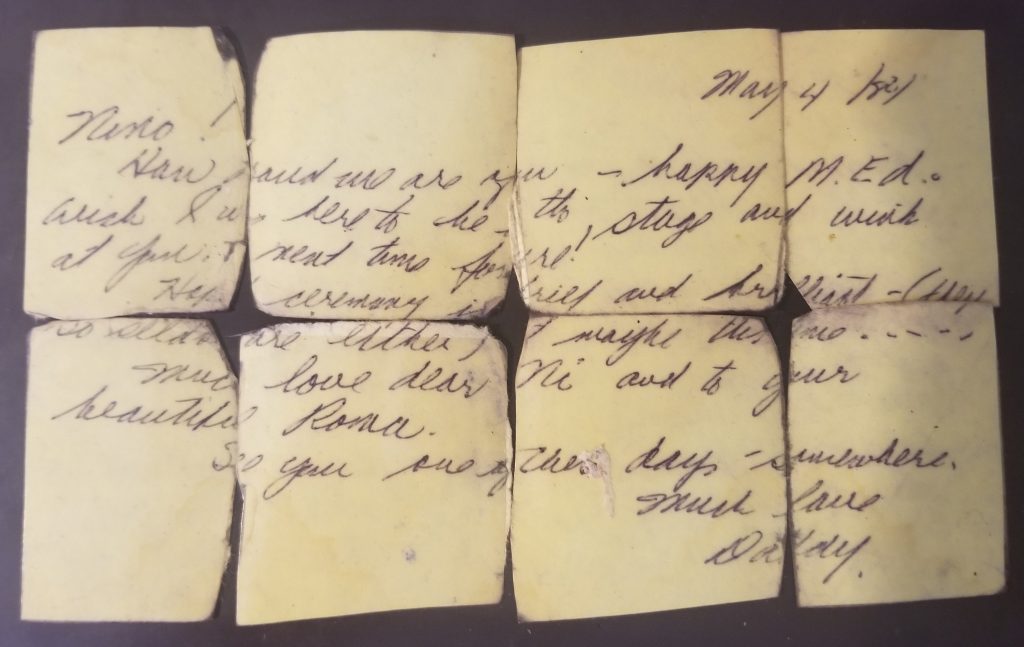 May 4 /82/
Nino!
and me are you - happy M.Ed.
wish I was there to be the stage and wink
at you. next time for sure!
Hope ceremony is brief and brilliant - (they
so seldom are either) maybe this time.....
Much love dear Ni and to your
beautiful Roma.
See you one of these days - somewhere.
Much love
Daddy.